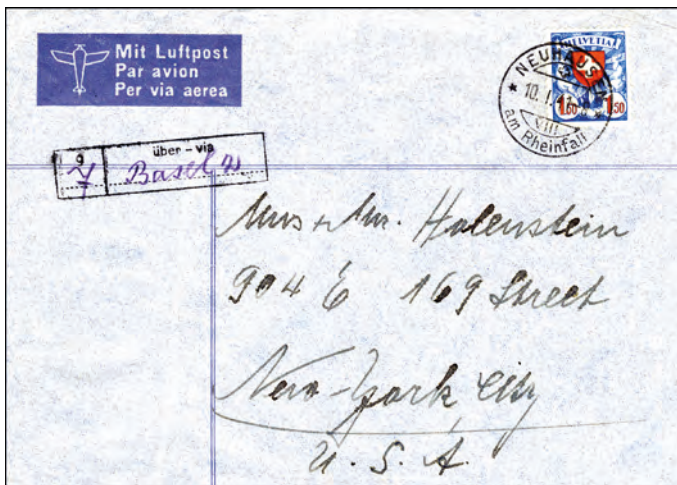 Mit Luftpost
Par avion
Per via aerea
HELVETIA
1.50 1.50
NEUHAUSEN
10. I. 47
VIII
am Rheinfall
9
7
über - via
Basel 2
Mrs + Mr. Holenstein
904 E 169 Street
New-York City
U. S. A.